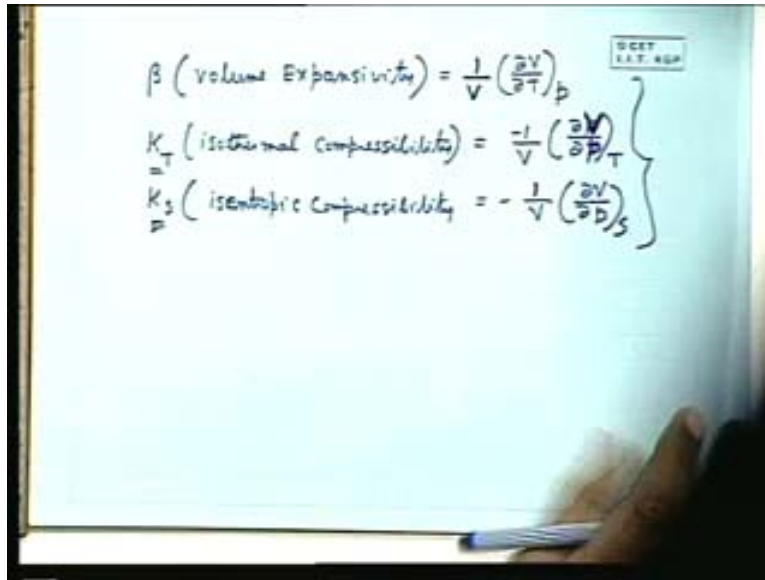 β ( volume Expansivity) = 1/V (∂V/∂T)p
K_T (isothermal compressibility) = -1/V (∂V/∂p)_T
K_S ( isentropic compressibility = - 1/V (∂V/∂p)_S
I.I.T. KGP